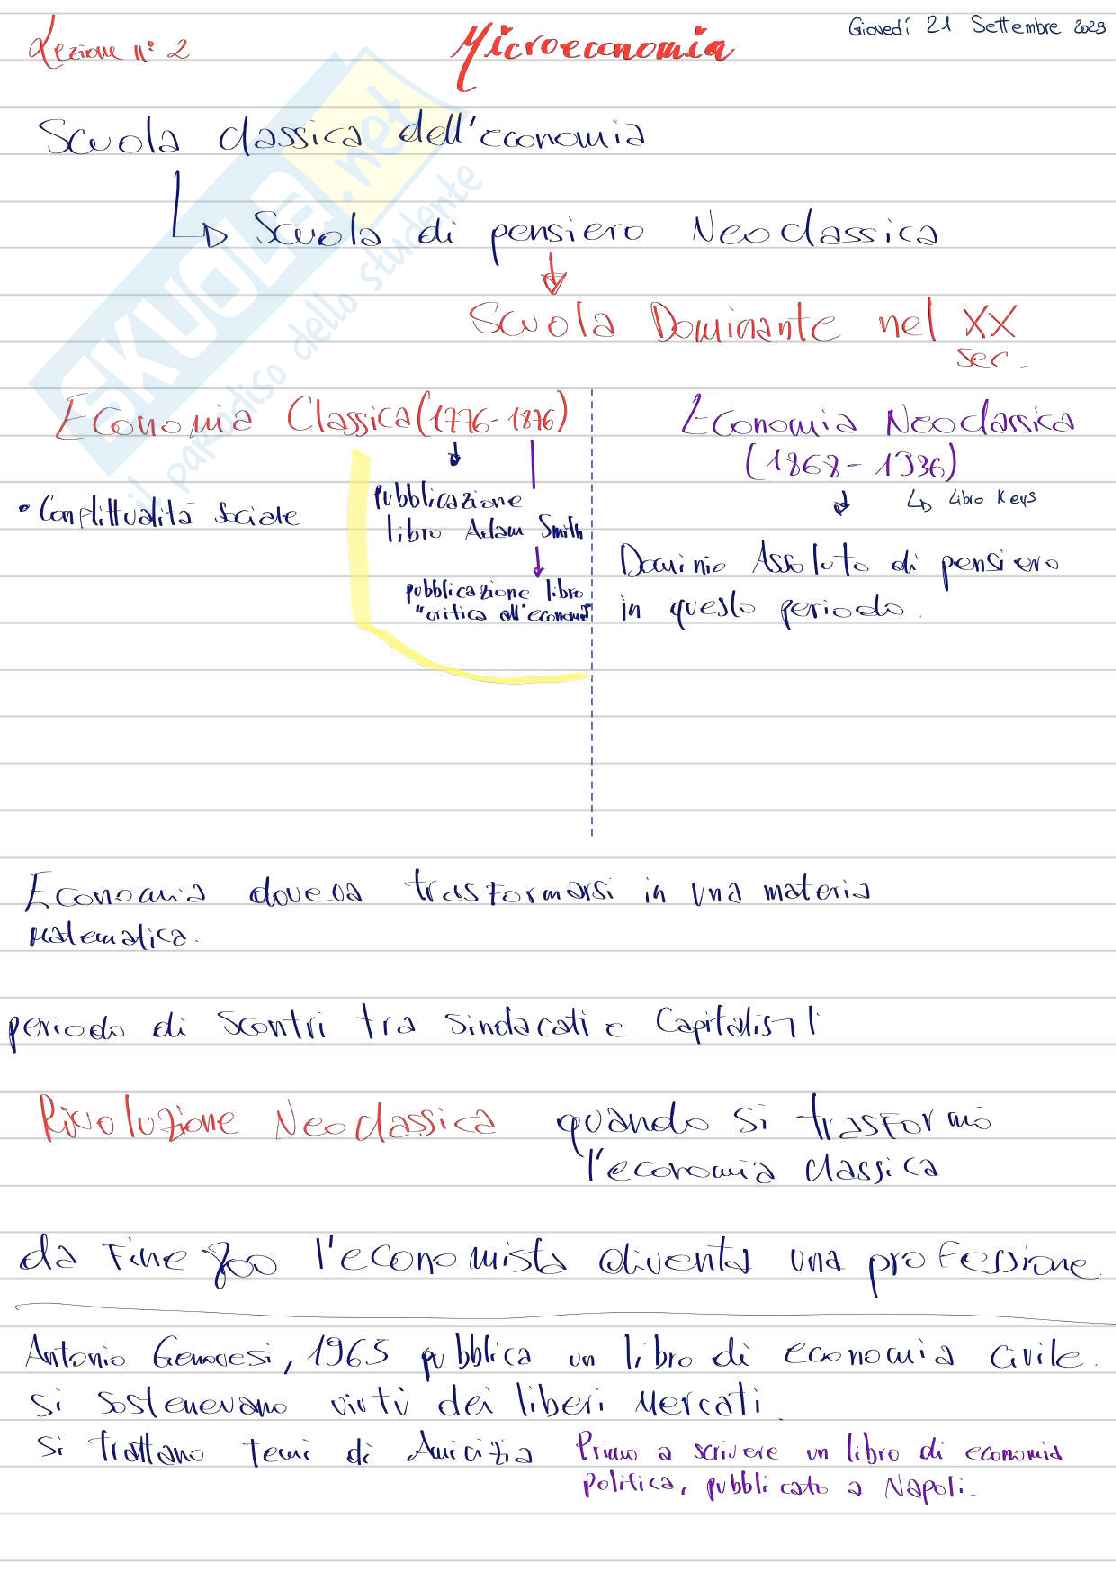 Lezione n° 2
Microeconomia
Giovedí 21 Settembre 2023
Scuola classica dell'economia
Scuola di pensiero Neoclassica
Scuola Dominante nel XX
sec.
Economia Classica (1776-1876)
pubblicazione
libro Adam Smith
pubblicazione libro
"critica all'economia"
• Conflittualitá sociale
Economia Neoclassica
(1868-1936)
Libro Keys
Dominio Assoluto di pensiero
in questo periodo.
Economia doveva trasformarsi in una materia
matematica.
periodo di scontri tra sindacati e Capitalisti
Rivoluzione Neoclassica quando si trasformó
l'economia classica
da fine 800 l'economista diventa una professione.
Antonio Genovesi, 1965 pubblica un libro di economia civile.
si sostenevano virtú dei liberi Mercati.
si trattano temi di Amicizia
Primo a scrivere un libro di economia
politica, pubblicato a Napoli.
SKUOLA.net
il paradiso dello studente